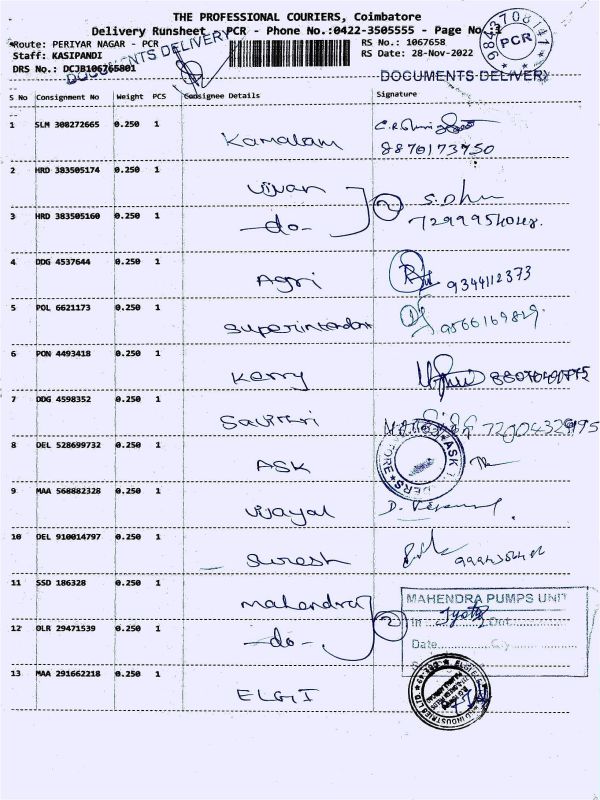 THE PROFESSIONAL COURIERS, Coimbatore
Delivery Runsheet - PCR - Phone No.:0422-3505555 - Page No.:1
*Route: PERIYAR NAGAR - PCR
RS No.: 1067658
Staff: KASIPANDI
RS Date: 28-Nov-2022
DRS No.: DCJB106765801
DOCUMENTS DELIVERY
DOCUMENTS DELIVERY
9843708141
PCR
S No Consignment No Weight PCS Consignee Details Signature
1 SLM 308272665 0.250 1 Kamalam
8870173750
2 HRD 383505174 0.250 1 Vijvan
3 HRD 383505160 0.250 1 -do- 2
4 DDG 4537644 0.250 1 Agri 9344112373
5 POL 6621173 0.250 1 Superintendent 9566169829
6 PON 4493418 0.250 1 Kerry
7 DDG 4598352 0.250 1 Savithri
8 DEL 528699732 0.250 1 ASK
9 MAA 568882328 0.250 1 Vijayal
10 DEL 910014797 0.250 1 Suresh
11 SSD 186328 0.250 1 Mahendra
MAHENDRA PUMPS UNIT
In Out
12 OLR 29471539 0.250 1 -do- 2
Date
13 MAA 291662218 0.250 1 ELGI